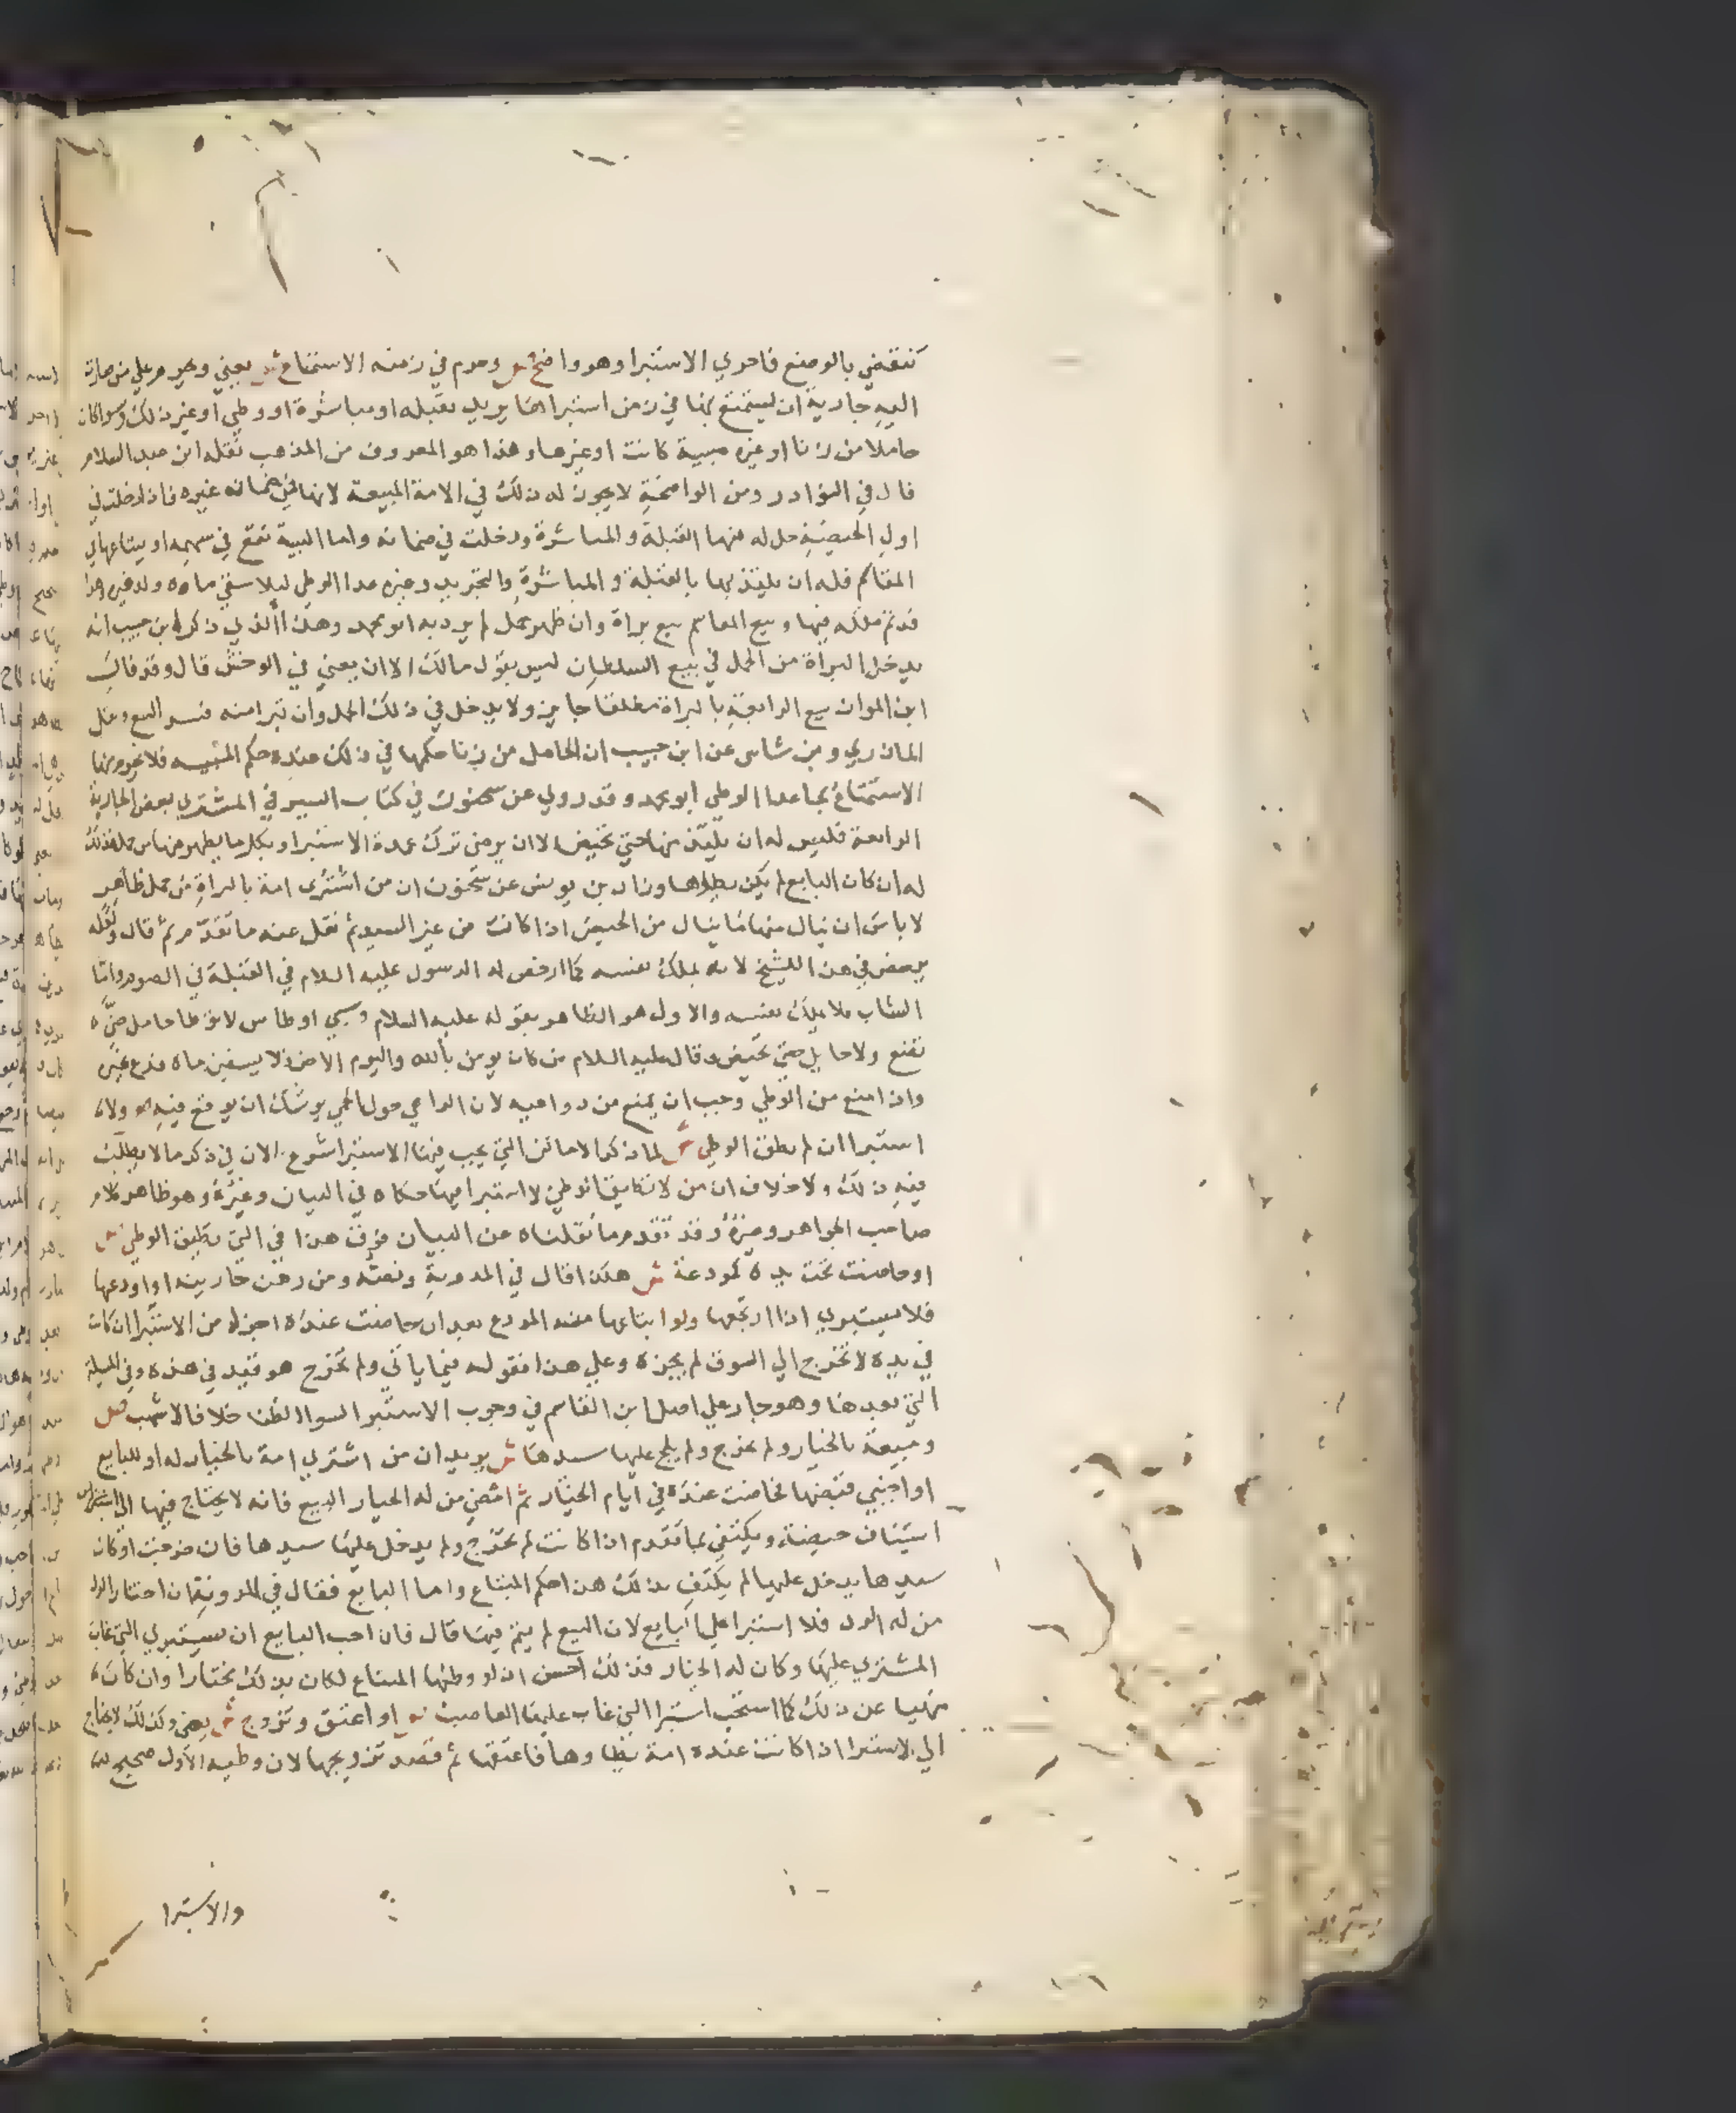 تنقضي بالوضع فاحري الاستبرا وهو واضح ص وحرم في زمنه الاستمتاع ش يعني ويحرم علي من صارت
اليه جارية ان يستمتع بها في زمن استبرائها يريد بقبلة او مباشرة او وطي او غير ذلك وسوا كان
حاملا من زنا او غيره مسبية كانت او غيرها وهذا هو المعروف من المذهب نقله ابن عبد السلام
قال في النوادر ومن الواضحة لا يجوز له ذلك في الامة المبيعة لانها في ضمان غيره فاذا دخلت في
اول الحيضة حل له منها القبلة والمباشرة ودخلت في ضمانه واما السبية تقع في سهمه او يبتاعها في
المقاسم فله ان يلتذ بها بالقبلة والمباشرة والتجريد وغيره عدا الوطي ليلا يسقي ماه ولد غيره وهذا
قد تم ملكه فيها وبيع المقاسم بيع براة وان ظهر حمل لم يرد به ابو محمد وهذا الذي ذكر ابن حبيب انه
يدخل البراة من الحمل في بيع السلطان ليس بقول مالك الا ان يعني في الوخش قال وقد قال
ابن المواز بيع الرايعة بالبراة مطلقا جايز ولا يدخل في ذلك الحمل وان تبرا منه فسد البيع ونقل
المازري وبن شاس عن ابن حبيب ان الحامل من زنا حكمها في ذلك عنده حكم المسبية فلا يحرم منها
الاستمتاع بما عدا الوطي ابو محمد وقد روي عن سحنون في كتاب السير في المشتري بعض الجارية
الرايعة فليس له ان يلتذ منها حتي تحيض الا ان يرضي ترك عهدة الاستبرا وبكل ما يظهر منها من حمل فذلك
له ان كان البايع لم يكن يطاها وزاد بن يونس عن سحنون ان من اشتري امة بالبراة من حمل ظاهر
لا باس ان ينال منها ما ينال من الحيض اذا كانت من غير السيد ثم نقل عنه ما تقدم ثم قال ولعله
يرخص في هذا للشيخ لانه يملك نفسه كما ارخص له الرسول عليه السلام في القبلة في الصوم واما
الشاب فلا يملك نفسه والاول هو الظاهر بقوله عليه السلام وسبي اوطاس لا توطا حامل حتي
تضع ولا حايل حتي تحيض وقال عليه السلام من كان يومن بالله واليوم الاخر فلا يسقين ماه زرع غيره
واذا منع من الوطي وجب ان يمنع من دواعيه لان الراعي حول الحمي يوشك ان يرتع فيه ص ولا
استبرا ان لم تطق الوطي ش لما ذكر الاماكن التي يجب فيها الاستبرا شرع الان في ذكر ما لا يطلب
فيه ذلك ولا خلاف ان من لا تطيق الوطي لا استبرا فيها حكاه في البيان وغيره وهو ظاهر كلام
صاحب الجواهر وغيره وقد تقدم ما نقلناه عن البيان من ان هذا في التي تطيق الوطي ص
او حاضت تحت يده كمودعة ش هكذا قال في المدونة ونصه ومن رهن جاريته او اودعها
فلا يستبري اذا ارتجعها ولو ابتاعها منه المودع بعد ان حاضت عنده اجزاه من الاستبرا ان كانت
في يده لا تخرج الي السوق لم يجزه وعلي هذا فقوله فيما ياتي ولم تخرج هو قيد في هذه وفي المسيلة
التي بعدها وهو جار علي اصل ابن القاسم في وجوب الاستبرا لسوا الظن خلافا لاشهب ص
ومبيعة بالخيار ولم تخرج ولم يلج عليها سيدها ش يريد ان من اشتري امة بالخيار له او للبايع
او اجنبي فقبضها فحاضت عنده في ايام الخيار ثم امضي من له الخيار البيع فانه لا يحتاج فيها الي
استيناف حيضة ويكتفي بما تقدم اذا كانت لم تخرج ولم يدخل عليها سيدها فان خرجت او كان
سيدها يدخل عليها لم يكتف بذلك هذا حكم المبتاع واما البايع فقال في المدونة فان اختار الرد
من له الرد فلا استبرا علي البايع لان البيع لم يتم فيها قال فان احب البايع ان يستبري التي غاب
المشتري عليها وكان له الخيار فذلك احسن اذ لو وطيها المبتاع لكان بذلك مختارا وان كان
منهيا عن ذلك كما استحب استبرا التي غاب عليها الغاصب ص او اعتق وتزوج ش يعني وكذلك لا يحتاج
الي الاستبرا اذا كانت عنده امة يطاوها فاعتقها ثم قصد تزويجها لان وطيه الاول صحيح
والاستبرا